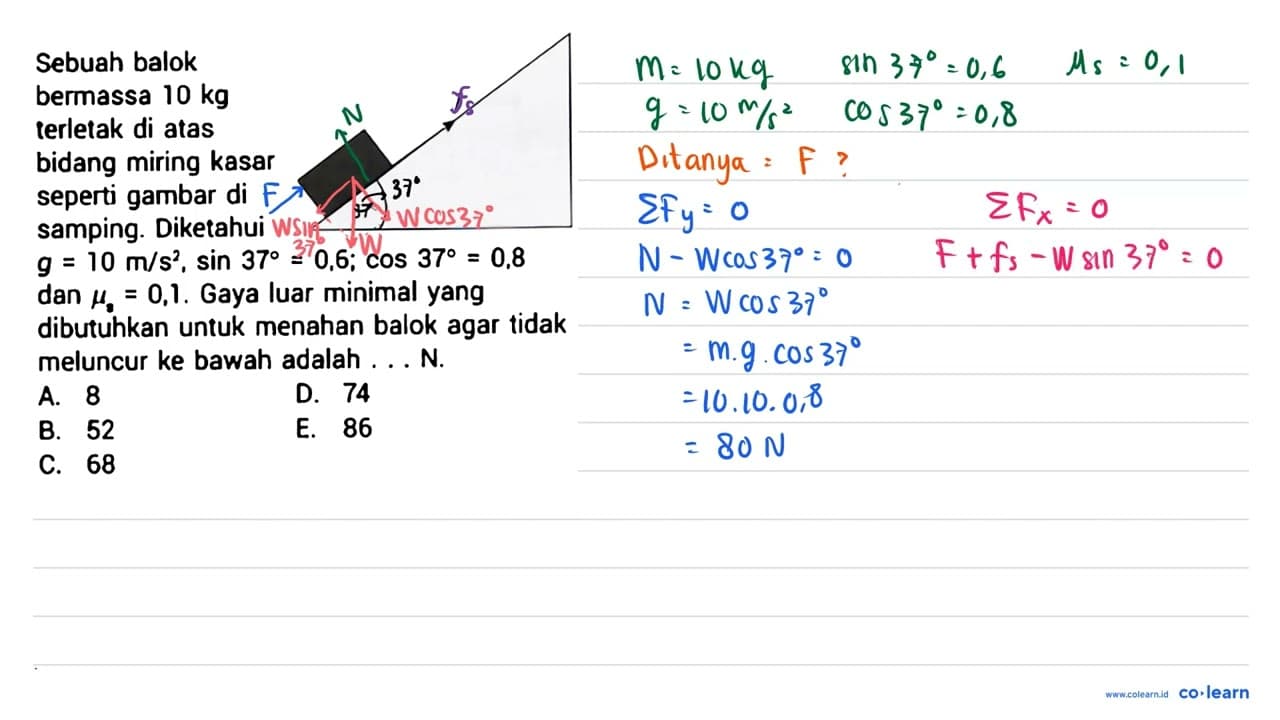 Sebuah balok
bermassa 10 kg
terletak di atas
bidang miring kasar
seperti gambar di
samping. Diketahui
g = 10 m/s², sin 37° = 0,6; cos 37° = 0,8
dan μs = 0,1. Gaya luar minimal yang
dibutuhkan untuk menahan balok agar tidak
meluncur ke bawah adalah . . . N.
A. 8
B. 52
C. 68
D. 74
E. 86
N
fs
F
37°
37
W cos 37°
W sin 37°
W
m = 10 kg sin 37° = 0,6 μs = 0,1
g = 10 m/s² cos 37° = 0,8
Ditanya = F ?
ΣFy = 0
N - W cos 37° = 0
N = W cos 37°
= m.g. cos 37°
= 10.10.0,8
= 80 N
ΣFx = 0
F + fs - W sin 37° = 0
www.colearn.id co·learn